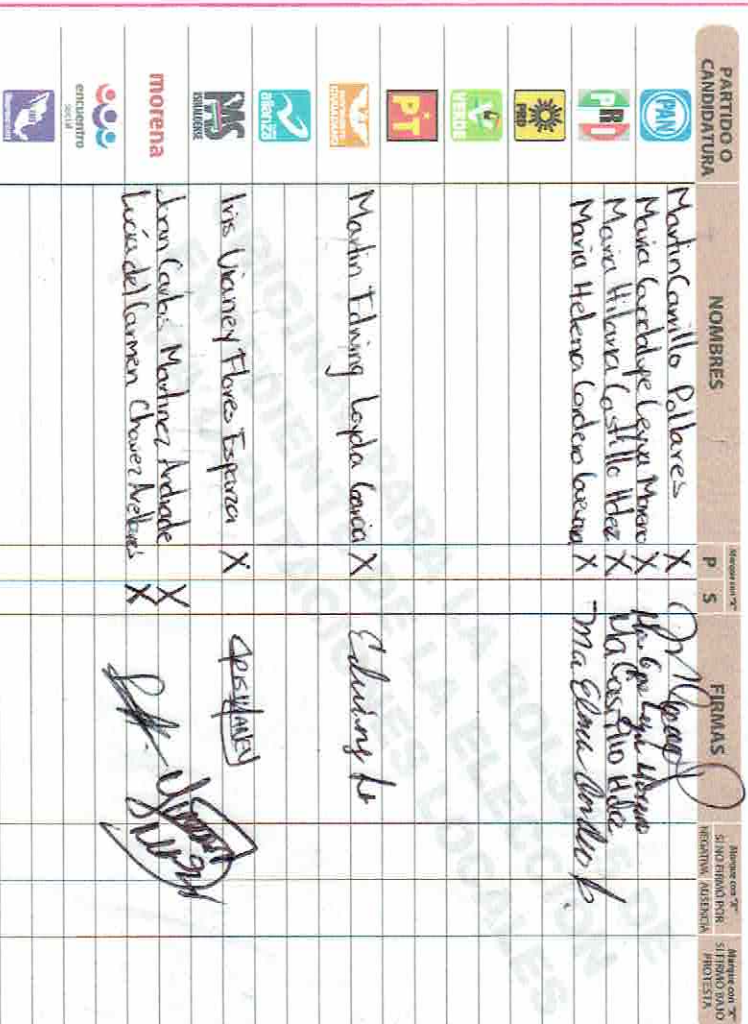 PARTIDO O CANDIDATURA
NOMBRES
Marque con "X"
P S
FIRMAS
Marque con "X" SI NO FIRMÓ POR
NEGATIVA AUSENCIA
Marque con "X" SI FIRMÓ BAJO PROTESTA
PAN
Martin Carrillo Pallares X
Maria Guadalupe Leyva Moreno X
PRI
Maria Hilaria Castillo Hdez X Ma Castillo Hdz
Maria Helena Cordero X Ma Elena Cordero
PRD
VERDE
PT
MOVIMIENTO CIUDADANO
Martin Edwing Loyola Garcia X
alianza
Iris Vianey Flores Esparza X
morena
Juan Carlos Martinez Andrade X
Lucia del Carmen Chavez Arellanes X
encuentro social
ORIGINAL PARA LA BOLSA DE
EXPEDIENTE DE LA ELECCIÓN
PARA DIPUTACIONES LOCALES